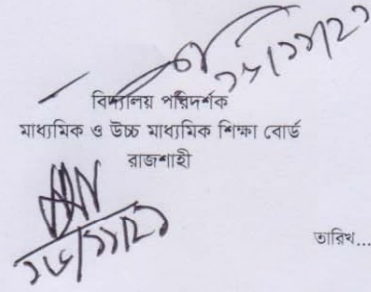 ২৮/১১/২১
বিদ্যালয় পরিদর্শক
মাধ্যমিক ও উচ্চ মাধ্যমিক শিক্ষা বোর্ড
রাজশাহী
২৮/১১/২১
তারিখ...